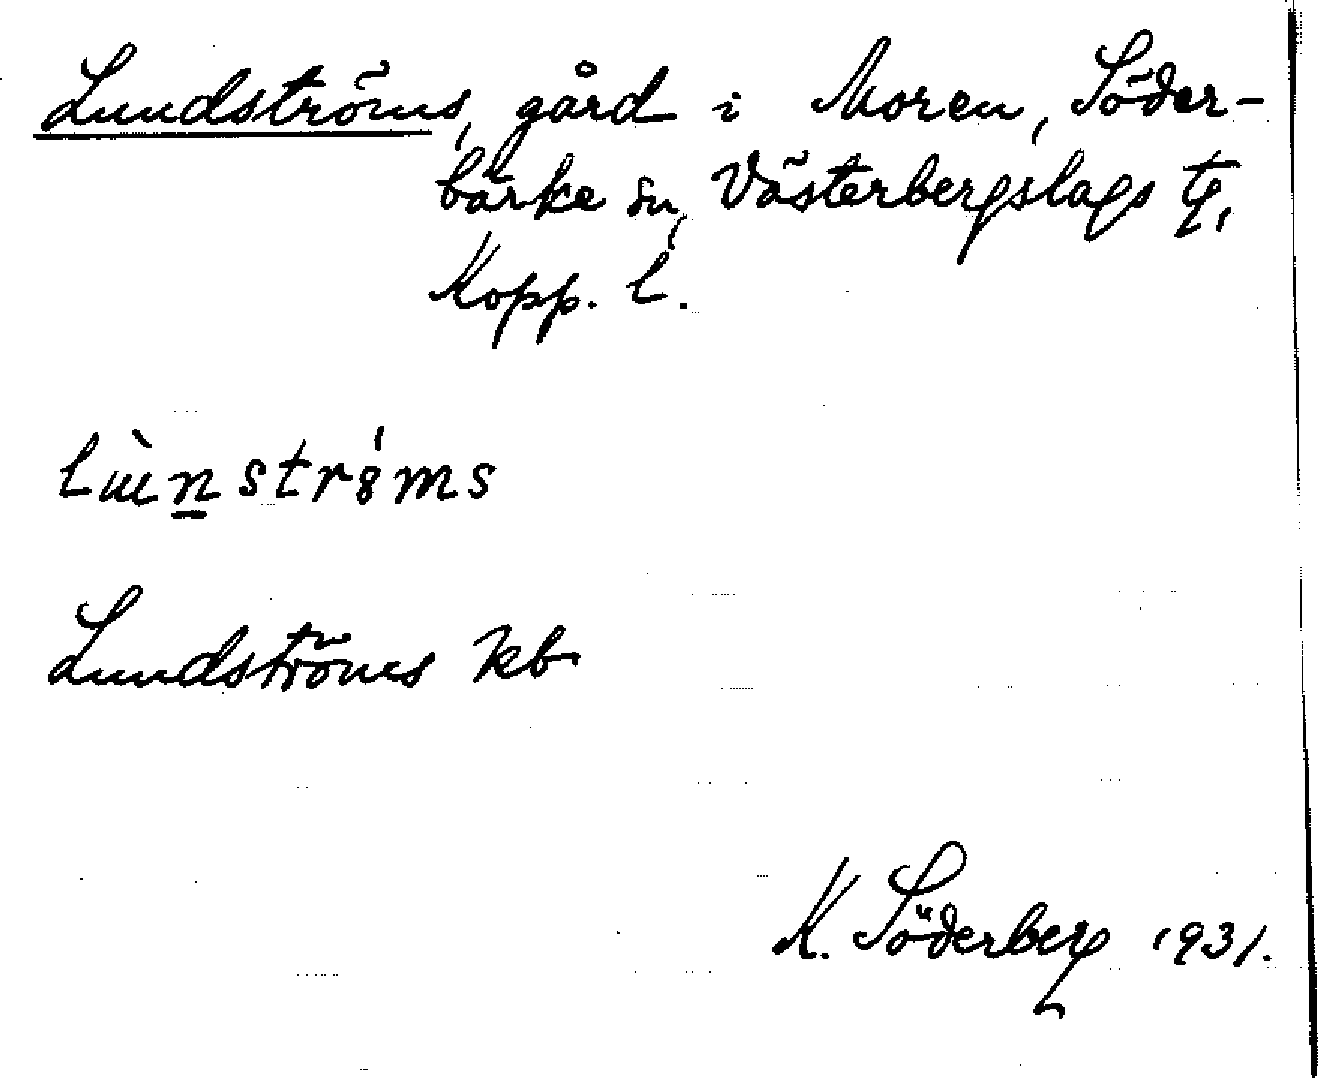 Lundströms, gård i Moren, Söder-
bärke sn, Västerbergslags tg,
Kopp. l.
lùnstrǿms
Lundströms kb
K. Söderberg 1931.